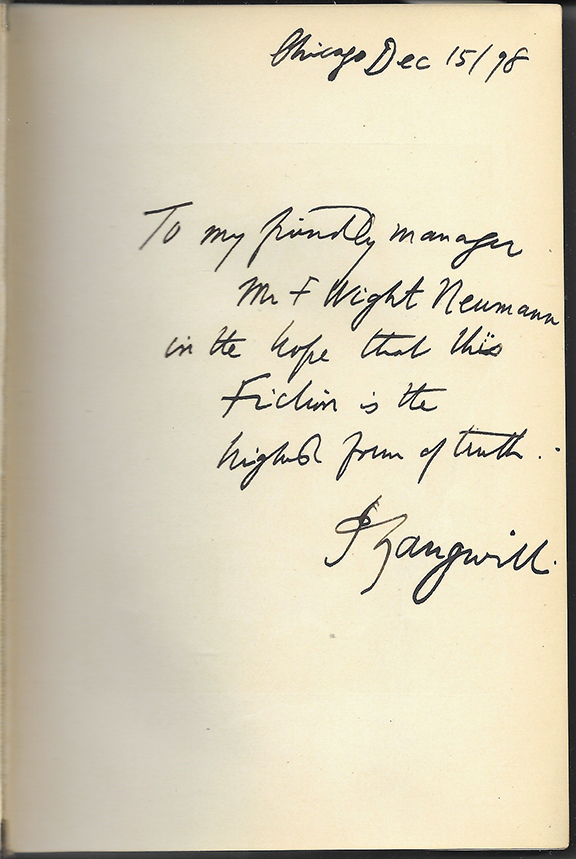 Chicago Dec 15/98
To my friendly manager
Mr F Wight Neumann
in the hope that this
Fiction is the
highest form of truth.
I Zangwill.